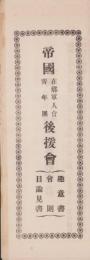 帝國在郷軍人會
青年團後援會
趣意書
會則
目論見書